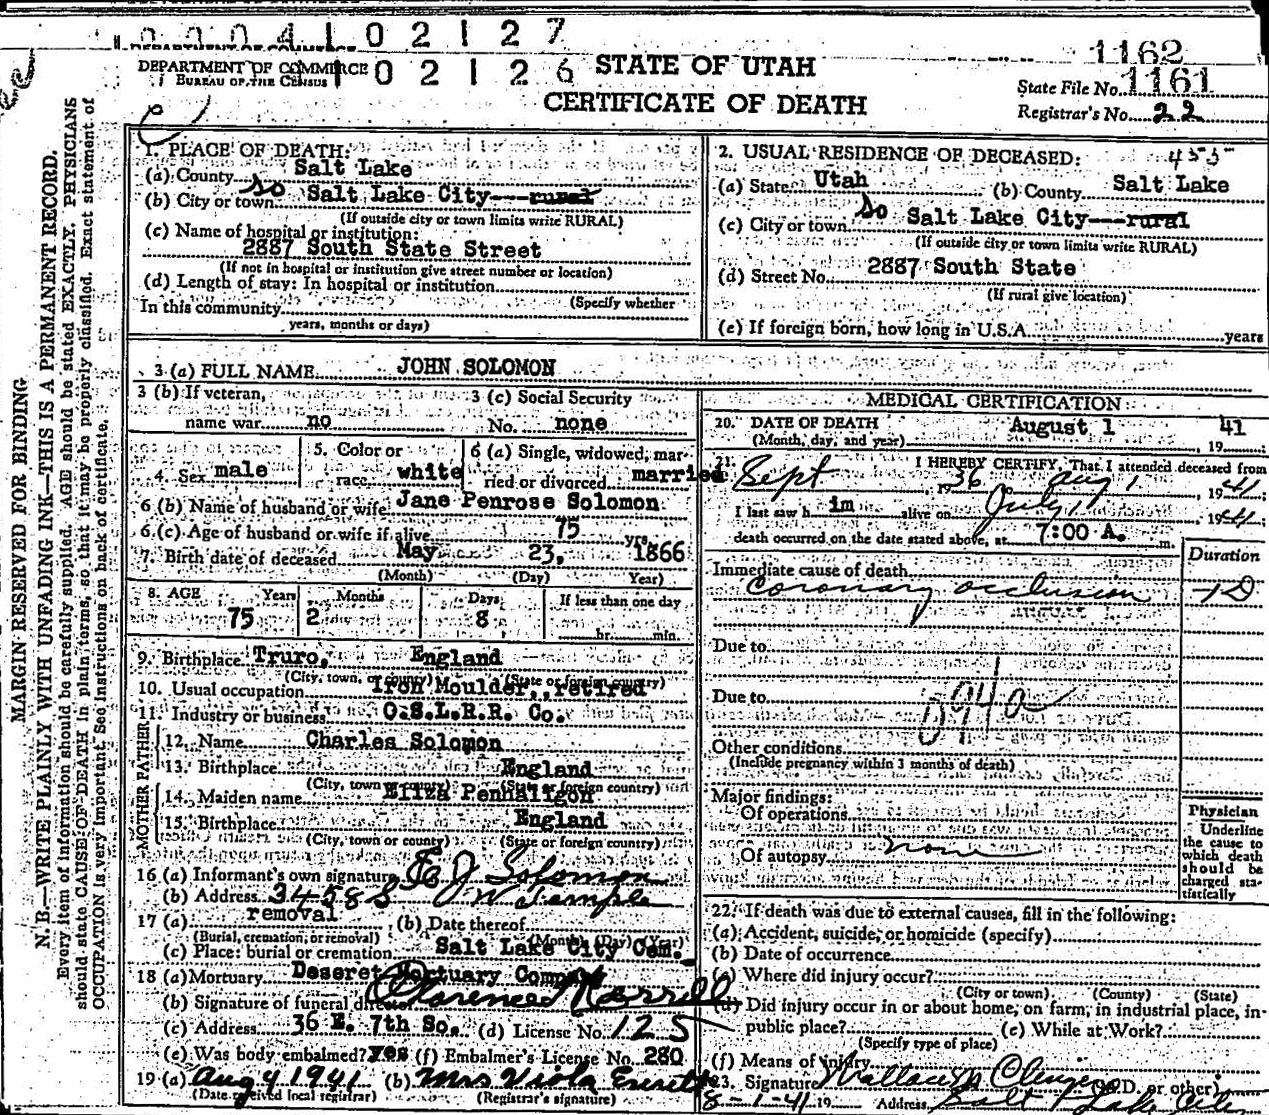 0 0 0 4 1 0 2 1 2 7
DEPARTMENT OF COMMERCE
1162
DEPARTMENT OF COMMERCE 1 0 2 1 2 6 STATE OF UTAH
BUREAU OF THE CENSUS
State File No. 1161
CERTIFICATE OF DEATH
Registrar's No. 22
MARGIN RESERVED FOR BINDING
N. B.—WRITE PLAINLY WITH UNFADING INK—THIS IS A PERMANENT RECORD.
Every item of information should be carefully supplied. AGE should be stated EXACTLY. PHYSICIANS
should state CAUSE OF DEATH in plain terms, so that it may be properly classified. Exact statement of
OCCUPATION is very important. See instructions on back of certificate.
1. PLACE OF DEATH:
(a) County Salt Lake
(b) City or town So Salt Lake City---rural
(If outside city or town limits write RURAL)
(c) Name of hospital or institution:
2887 South State Street
(If not in hospital or institution give street number or location)
(d) Length of stay: In hospital or institution
(Specify whether
In this community
years, months or days)
2. USUAL RESIDENCE OF DECEASED: 455
(a) State Utah (b) County Salt Lake
(c) City or town So Salt Lake City---rural
(If outside city or town limits write RURAL)
(d) Street No. 2887 South State
(If rural give location)
(e) If foreign born, how long in U.S.A. years
3 (a) FULL NAME JOHN SOLOMON
3 (b) If veteran, 3 (c) Social Security
name war no No. none
4. Sex male 5. Color or race white 6 (a) Single, widowed, married or divorced married
6 (b) Name of husband or wife Jane Penrose Solomon
6 (c) Age of husband or wife if alive 75 yrs.
7. Birth date of deceased May 23, 1866
(Month) (Day) Year)
8. AGE Years Months Days If less than one day
75 2 8 hr. min.
9. Birthplace Truro, England
(City, town, or county) (State or foreign country)
10. Usual occupation Iron Moulder, retired
11. Industry or business O.S.L.R.R. Co.
FATHER
12. Name Charles Solomon
13. Birthplace England
(City, town or county) (State or foreign country)
MOTHER
14. Maiden name Eliza Penhaligon
15. Birthplace England
(City, town or county) (State or foreign country)
16 (a) Informant's own signature J Solomon
(b) Address 3458 S W Temple
17 (a) removal (b) Date thereof
(Burial, cremation, or removal) (Month) (Day) (Year)
(c) Place: burial or cremation Salt Lake City Cem.
18 (a) Mortuary Deseret Mortuary Company
(b) Signature of funeral director Clarence Morrell
(c) Address 36 E. 7th So. (d) License No. 125
(e) Was body embalmed? yes (f) Embalmer's License No. 280
19 (a) Aug 4 1941 (b) Mrs Viola Everett
(Date received local registrar) (Registrar's signature)
MEDICAL CERTIFICATION
20. DATE OF DEATH August 1 19 41
(Month, day, and year)
21. I HEREBY CERTIFY, That I attended deceased from
Sept 1936 Aug 1, 1941;
I last saw h im alive on July 1941;
death occurred on the date stated above, at 7:00 A. m.
Duration
Immediate cause of death
Coronary occlusion 1D
Due to
Due to 094a
Other conditions
(Include pregnancy within 3 months of death)
Major findings:
Of operations
Of autopsy none
Physician
Underline
the cause to
which death
should be
charged sta-
tistically
22. If death was due to external causes, fill in the following:
(a) Accident, suicide, or homicide (specify)
(b) Date of occurrence
(c) Where did injury occur?
(City or town) (County) (State)
(d) Did injury occur in or about home, on farm, in industrial place, in
public place? (e) While at Work?
(Specify type of place)
(f) Means of injury
23. Signature Wallace (M.D. or other)
8-1-41 19 Address Salt Lake City